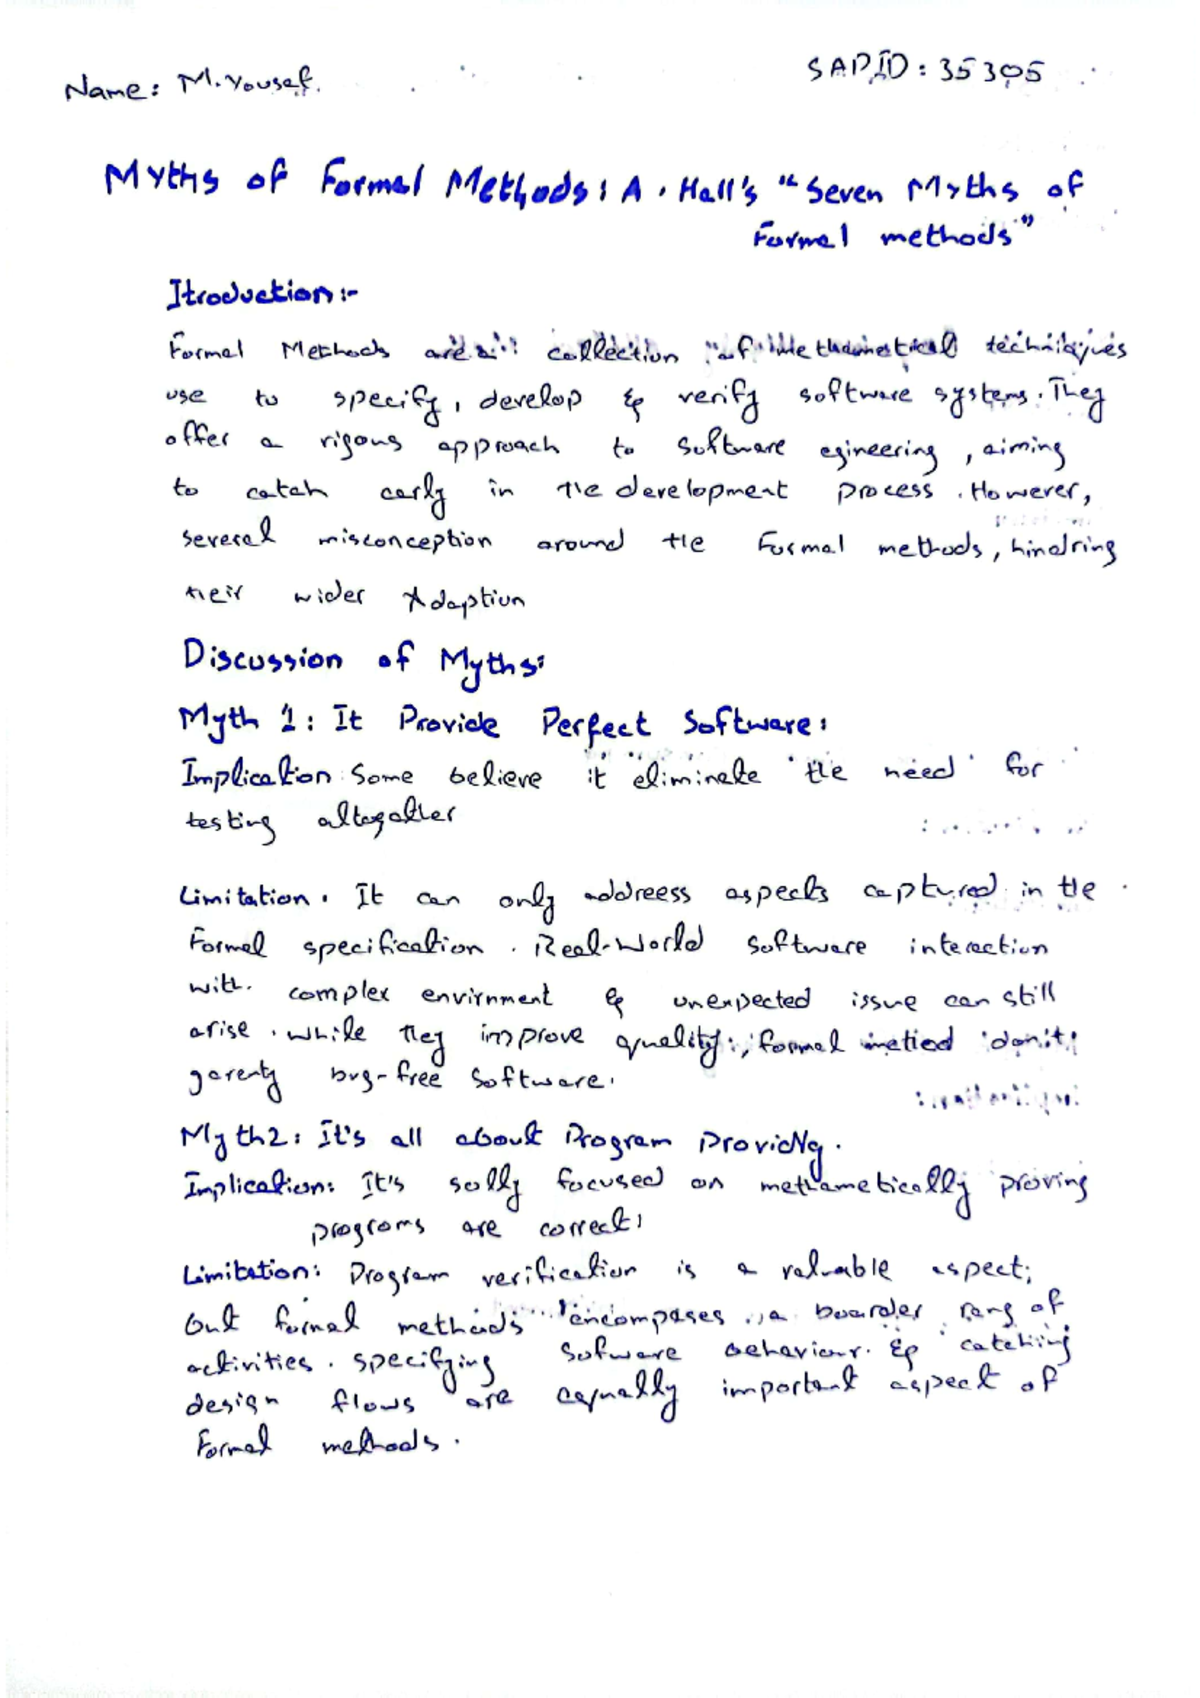 Name: M.Yousaf.
SAPID: 35305
Myths of Formal Methods: A. Hall's "Seven Myths of
Formal methods"
Itroduction:-
Formal Methods are a collection of mathematical techniques
use to specify, develop & verify software systems. They
offer a rigous approach to software egineering, aiming
to catch early in the development process. However,
several misconception around the Formal methods, hindring
their wider Adaption
Discussion of Myths:
Myth 1: It Provide Perfect Software:
Implication: Some believe it eliminate the need for
testing altogather
Limitation. It can only addreess aspects captured in the
Formal specification. Real-World software interaction
with complex envirnment & unexpected issue can still
arise. while they improve quality, formal method don't
garenty bug-free software.
Myth2: It's all about Program ProvidNg.
Implication: It's solly focused on methametically proving
programs are correct:
Limitation: Program verification is a valuable aspect;
but formal methods encompases a boarder rang of
activities. specifying sofware behaviour. & catching
design flows are equally important aspect of
Formal methods.